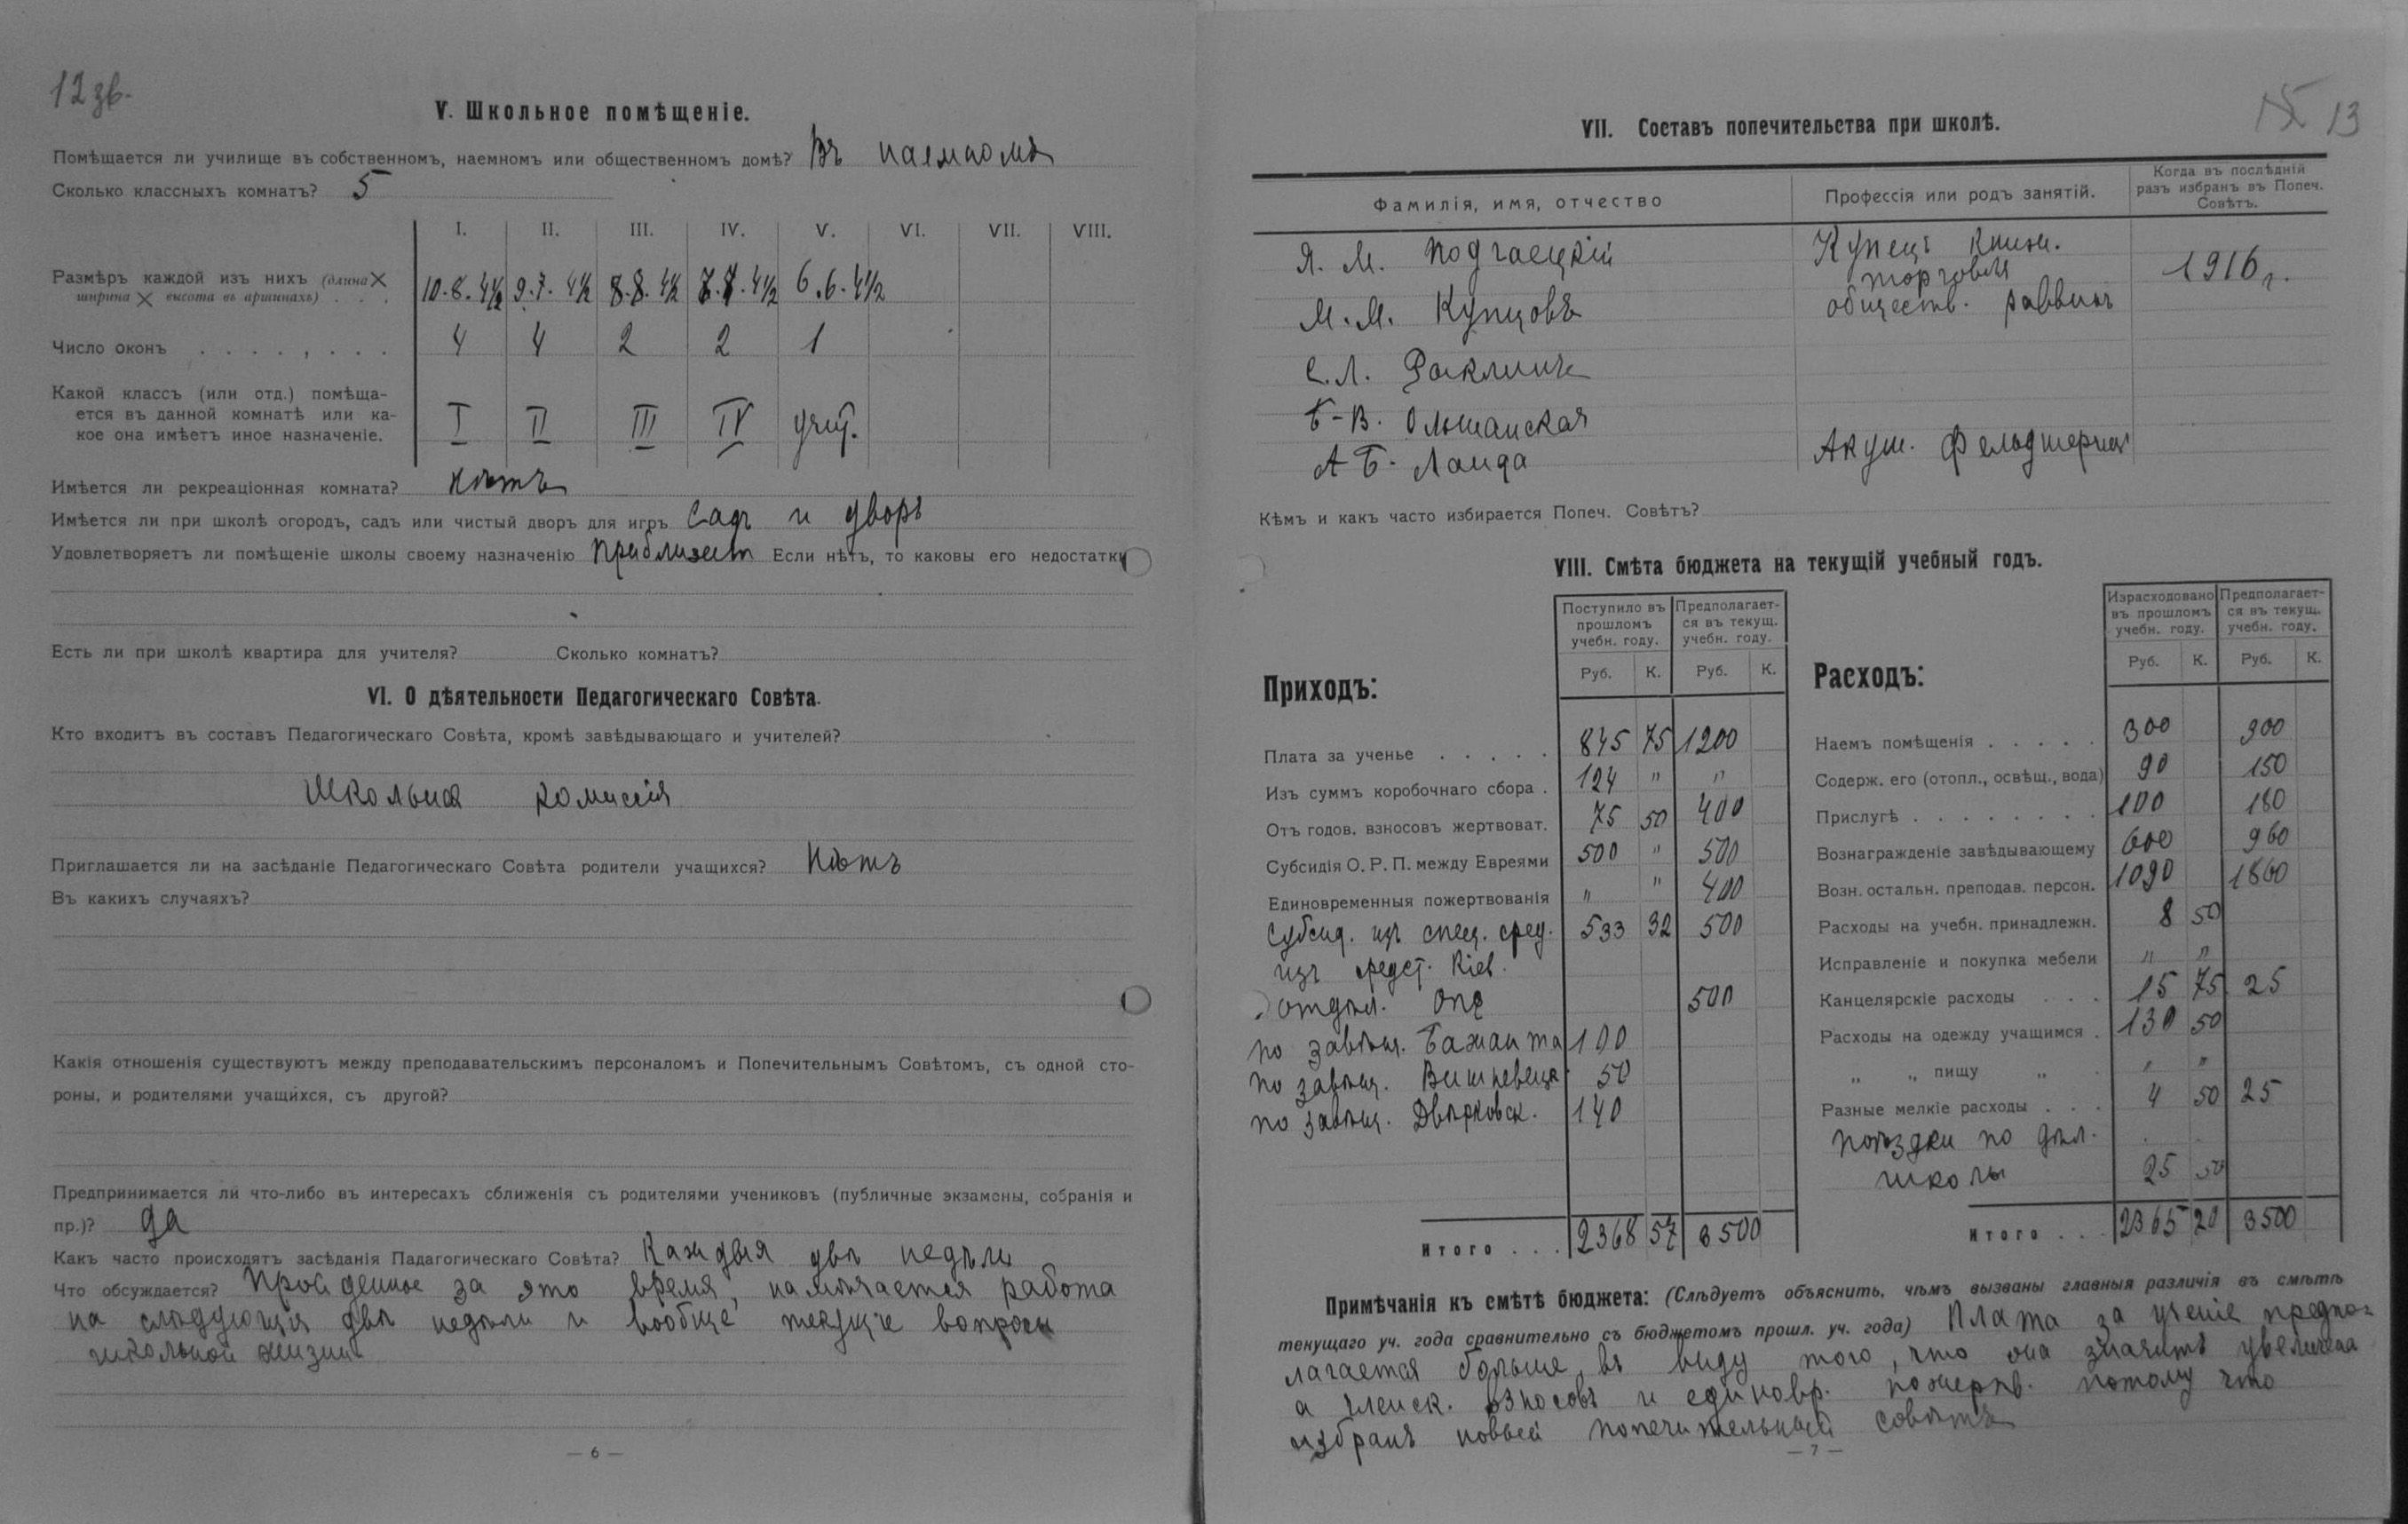 12 зв.
V. Школьное помѣщеніе.
Помѣщается ли училище въ собственномъ, наемномъ или общественномъ домѣ? Въ наемномъ
Сколько классныхъ комнатъ? 5
I. II. III. IV. V. VI. VII. VIII.
Размѣръ каждой изъ нихъ (длина ×
ширина × высота въ аршинахъ) . . . 10.8.4½ 9.7.4½ 8.8.4½ 7.7.4½ 6.6.4½
Число оконъ . . . . , . . . 4 4 2 2 1
Какой классъ (или отд.) помѣща-
ется въ данной комнатѣ или ка-
кое она имѣетъ иное назначеніе. I II III IV учит.
Имѣется ли рекреаціонная комната? нѣтъ
Имѣется ли при школѣ огородъ, садъ или чистый дворъ для игръ Садъ и дворъ
Удовлетворяетъ ли помѣщеніе школы своему назначенію приблизит Если нѣтъ, то каковы его недостатки
Есть ли при школѣ квартира для учителя? Сколько комнатъ?
VI. О дѣятельности Педагогическаго Совѣта.
Кто входитъ въ составъ Педагогическаго Совѣта, кромѣ завѣдывающаго и учителей?
Школьная комиссія
Приглашается ли на засѣданіе Педагогическаго Совѣта родители учащихся? Нѣтъ
Въ какихъ случаяхъ?
Какія отношенія существуютъ между преподавательскимъ персоналомъ и Попечительнымъ Совѣтомъ, съ одной сто-
роны, и родителями учащихся, съ другой?
Предпринимается ли что-либо въ интересахъ сближенія съ родителями учениковъ (публичные экзамены, собранія и
пр.)? Да
Какъ часто происходятъ засѣданія Падагогическаго Совѣта? Каждыя двѣ недѣли
Что обсуждается? Пройденное за это время, намѣчается работа
на слѣдующія двѣ недѣли и вообще текущіе вопросы
школьной жизни
— 6 —
15 13
VII. Составъ попечительства при школѣ.
Фамилія, имя, отчество
Профессія или родъ занятій.
Когда въ послѣдній
разъ избранъ въ Попеч.
Совѣтъ.
Я. М. Подгаецкій Купецъ книж.
торговля 1916 г.
М. М. Купцовъ обществ. раввинъ
С. Л. Раклинъ
Б-В. Ольшанская
А Б. Ланда Акуш. Фельдшерица
Кѣмъ и какъ часто избирается Попеч. Совѣтъ?
VIII. Смѣта бюджета на текущій учебный годъ.
Приходъ:
Поступило въ
прошломъ
учебн. году.
Предполагает-
ся въ текущ.
учебн. году.
Руб. К. Руб. К.
Плата за ученье . . . . . 845 75 1200
Изъ суммъ коробочнаго сбора . 124 " "
Отъ годов. взносовъ жертвоват. 75 50 400
Субсидія О. Р. П. между Евреями 500 " 500
Единовременныя пожертвованія " " 400
Субсид. изъ спец. сред. 533 32 500
изъ средст. Кіев.
отдѣл. ОПЕ 500
по завѣщ. Бажанта 100
по завѣщ. Вишневецк. 50
по завѣщ. Двѣрковск. 140
Итого . . . 2368 57 3500
Расходъ:
Израсходовано
въ прошломъ
учебн. году.
Предполагает-
ся въ текущ.
учебн. году.
Руб. К. Руб. К.
Наемъ помѣщенія . . . . . 300 300
Содерж. его (отопл., освѣщ., вода) 90 150
Прислугѣ . . . . . . . . 100 180
Вознагражденіе завѣдывающему 600 960
Возн. остальн. преподав. персон. 1090 1860
Расходы на учебн. принадлежн. 8 50
Исправленіе и покупка мебели " "
Канцелярскіе расходы . . . 15 75 25
Расходы на одежду учащимся . 130 50
„ „ пищу „ . " "
Разные мелкіе расходы . . . 4 50 25
поѣздки по дѣл.
школы 25 50
Итого . . . 2365 20 3500
Примѣчанія къ смѣтѣ бюджета: (Слѣдуетъ объяснить, чѣмъ вызваны главныя различія въ смѣтѣ
текущаго уч. года сравнительно съ бюджетомъ прошл. уч. года) Плата за ученіе предпо-
лагается больше, въ виду того, что она значит увеличена
а членск. взносовъ и единовр. пожертв. потому что
избранъ новый попечительный совѣтъ
— 7 —